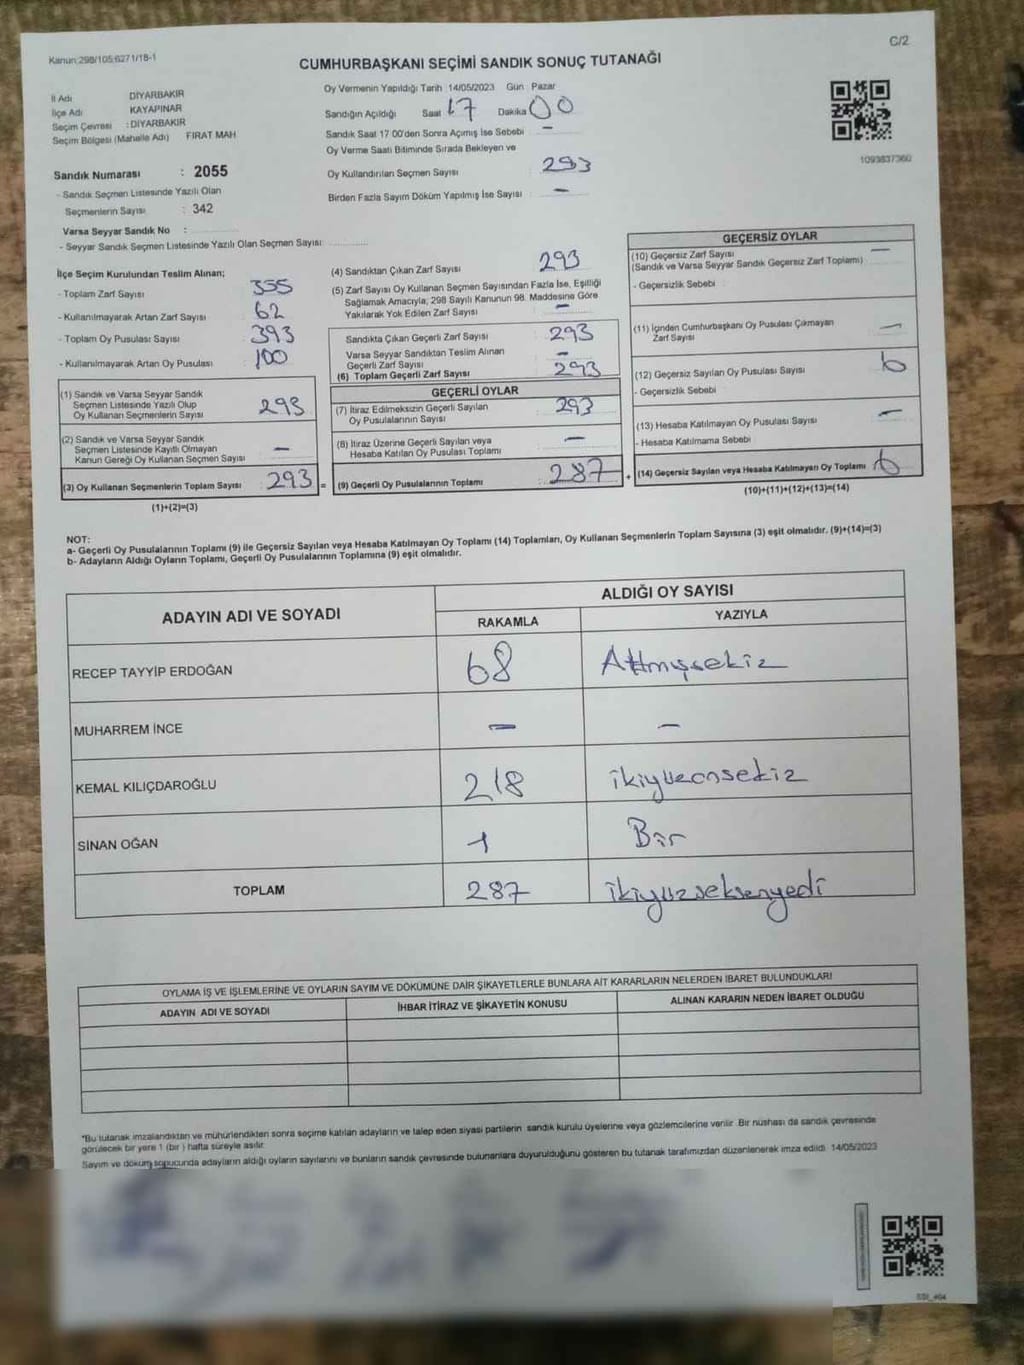 Kanun:298/105;6271/18-1
C/2
CUMHURBAŞKANI SEÇİMİ SANDIK SONUÇ TUTANAĞI
İl Adı DİYARBAKIR
İlçe Adı KAYAPINAR
Seçim Çevresi : DİYARBAKIR
Seçim Bölgesi (Mahalle Adı) FIRAT MAH
Sandık Numarası : 2055
- Sandık Seçmen Listesinde Yazılı Olan
Seçmenlerin Sayısı : 342
Varsa Seyyar Sandık No :
- Seyyar Sandık Seçmen Listesinde Yazılı Olan Seçmen Sayısı:
Oy Vermenin Yapıldığı Tarih 14/05/2023 Gün Pazar
Sandığın Açıldığı Saat 17 Dakika 00
Sandık Saat 17 00'den Sonra Açımış İse Sebebi -
Oy Verme Saati Bitiminde Sırada Bekleyen ve
Oy Kullandırılan Seçmen Sayısı 293
Birden Fazla Sayım Döküm Yapılmış İse Sayısı -
1093837360
İlçe Seçim Kurulundan Teslim Alınan;
- Toplam Zarf Sayısı 355
- Kullanılmayarak Artan Zarf Sayısı 62
- Toplam Oy Pusulası Sayısı 393
- Kullanılmayarak Artan Oy Pusulası 100
(1) Sandık ve Varsa Seyyar Sandık
Seçmen Listesinde Yazılı Olup
Oy Kullanan Seçmenlerin Sayısı 293
(2) Sandık ve Varsa Seyyar Sandık
Seçmen Listesinde Kayıtlı Olmayan
Kanun Gereği Oy Kullanan Seçmen Sayısı -
(3) Oy Kullanan Seçmenlerin Toplam Sayısı 293 =
(1)+(2)=(3)
(4) Sandıktan Çıkan Zarf Sayısı 293
(5) Zarf Sayısı Oy Kullanan Seçmen Sayısından Fazla İse, Eşitliği
Sağlamak Amacıyla; 298 Sayılı Kanunun 98. Maddesine Göre
Yakılarak Yok Edilen Zarf Sayısı -
Sandıkta Çıkan Geçerli Zarf Sayısı 293
Varsa Seyyar Sandıktan Teslim Alınan
Geçerli Zarf Sayısı -
(6) Toplam Geçerli Zarf Sayısı 293
GEÇERLİ OYLAR
(7) İtiraz Edilmeksizin Geçerli Sayılan
Oy Pusulalarının Sayısı 293
(8) İtiraz Üzerine Geçerli Sayılan veya
Hesaba Katılan Oy Pusulası Toplamı -
(9) Geçerli Oy Pusulalarının Toplamı : 287 +
GEÇERSİZ OYLAR
(10) Geçersiz Zarf Sayısı -
(Sandık ve Varsa Seyyar Sandık Geçersiz Zarf Toplamı)
- Geçersizlik Sebebi
(11) İçinden Cumhurbaşkanı Oy Pusulası Çıkmayan
Zarf Sayısı -
(12) Geçersiz Sayılan Oy Pusulası Sayısı 6
- Geçersizlik Sebebi
(13) Hesaba Katılmayan Oy Pusulası Sayısı -
- Hesaba Katılmama Sebebi
(14) Geçersiz Sayılan veya Hesaba Katılmayan Oy Toplamı 6
(10)+(11)+(12)+(13)=(14)
NOT:
a- Geçerli Oy Pusulalarının Toplamı (9) ile Geçersiz Sayılan veya Hesaba Katılmayan Oy Toplamı (14) Toplamları, Oy Kullanan Seçmenlerin Toplam Sayısına (3) eşit olmalıdır. (9)+(14)=(3)
b- Adayların Aldığı Oyların Toplamı, Geçerli Oy Pusulalarının Toplamına (9) eşit olmalıdır.
ADAYIN ADI VE SOYADI
ALDIĞI OY SAYISI
RAKAMLA YAZIYLA
RECEP TAYYİP ERDOĞAN 68 Altmışsekiz
MUHARREM İNCE - -
KEMAL KILIÇDAROĞLU 218 ikiyüzonsekiz
SİNAN OĞAN 1 Bir
TOPLAM 287 ikiyüzseksenyedi
OYLAMA İŞ VE İŞLEMLERİNE VE OYLARIN SAYIM VE DÖKÜMÜNE DAİR ŞİKAYETLERLE BUNLARA AİT KARARLARIN NELERDEN İBARET BULUNDUKLARI
ADAYIN ADI VE SOYADI İHBAR İTİRAZ VE ŞİKAYETİN KONUSU ALINAN KARARIN NEDEN İBARET OLDUĞU
*Bu tutanak imzalandıktan ve mühürlendikten sonra seçime katılan adayların ve talep eden siyasi partilerin sandık kurulu üyelerine veya gözlemcilerine verilir. Bir nüshası da sandık çevresinde
görülecek bir yere 1 (bir) hafta süreyle asılır.
Sayım ve döküm sonucunda adayların aldığı oyların sayılarını ve bunların sandık çevresinde bulunanlara duyurulduğunu gösteren bu tutanak tarafımızdan düzenlenerek imza edildi. 14/05/2023